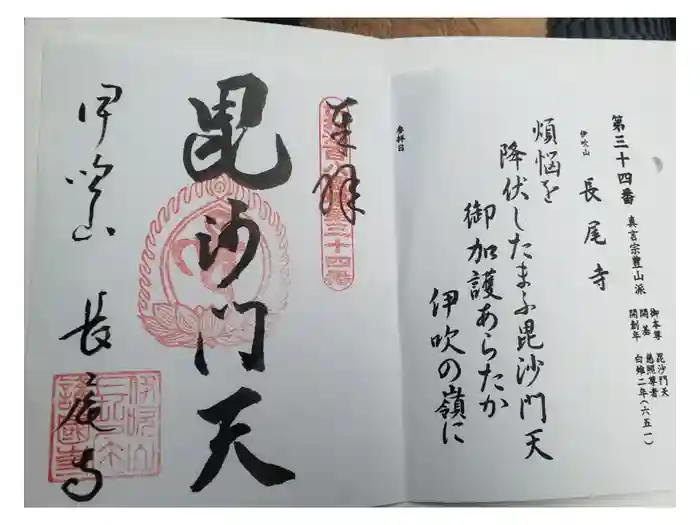 第三十四番 真言宗豊山派
伊吹山 長尾寺
御本尊 毘沙門天
開基 慈照尊者
開創年 白雉二年(六五一)
煩悩を
降伏したまふ毘沙門天
御加護あらたか
伊吹の嶺に
参拝日
奉拝
三十四番
毘沙門天
伊吹山 長尾寺